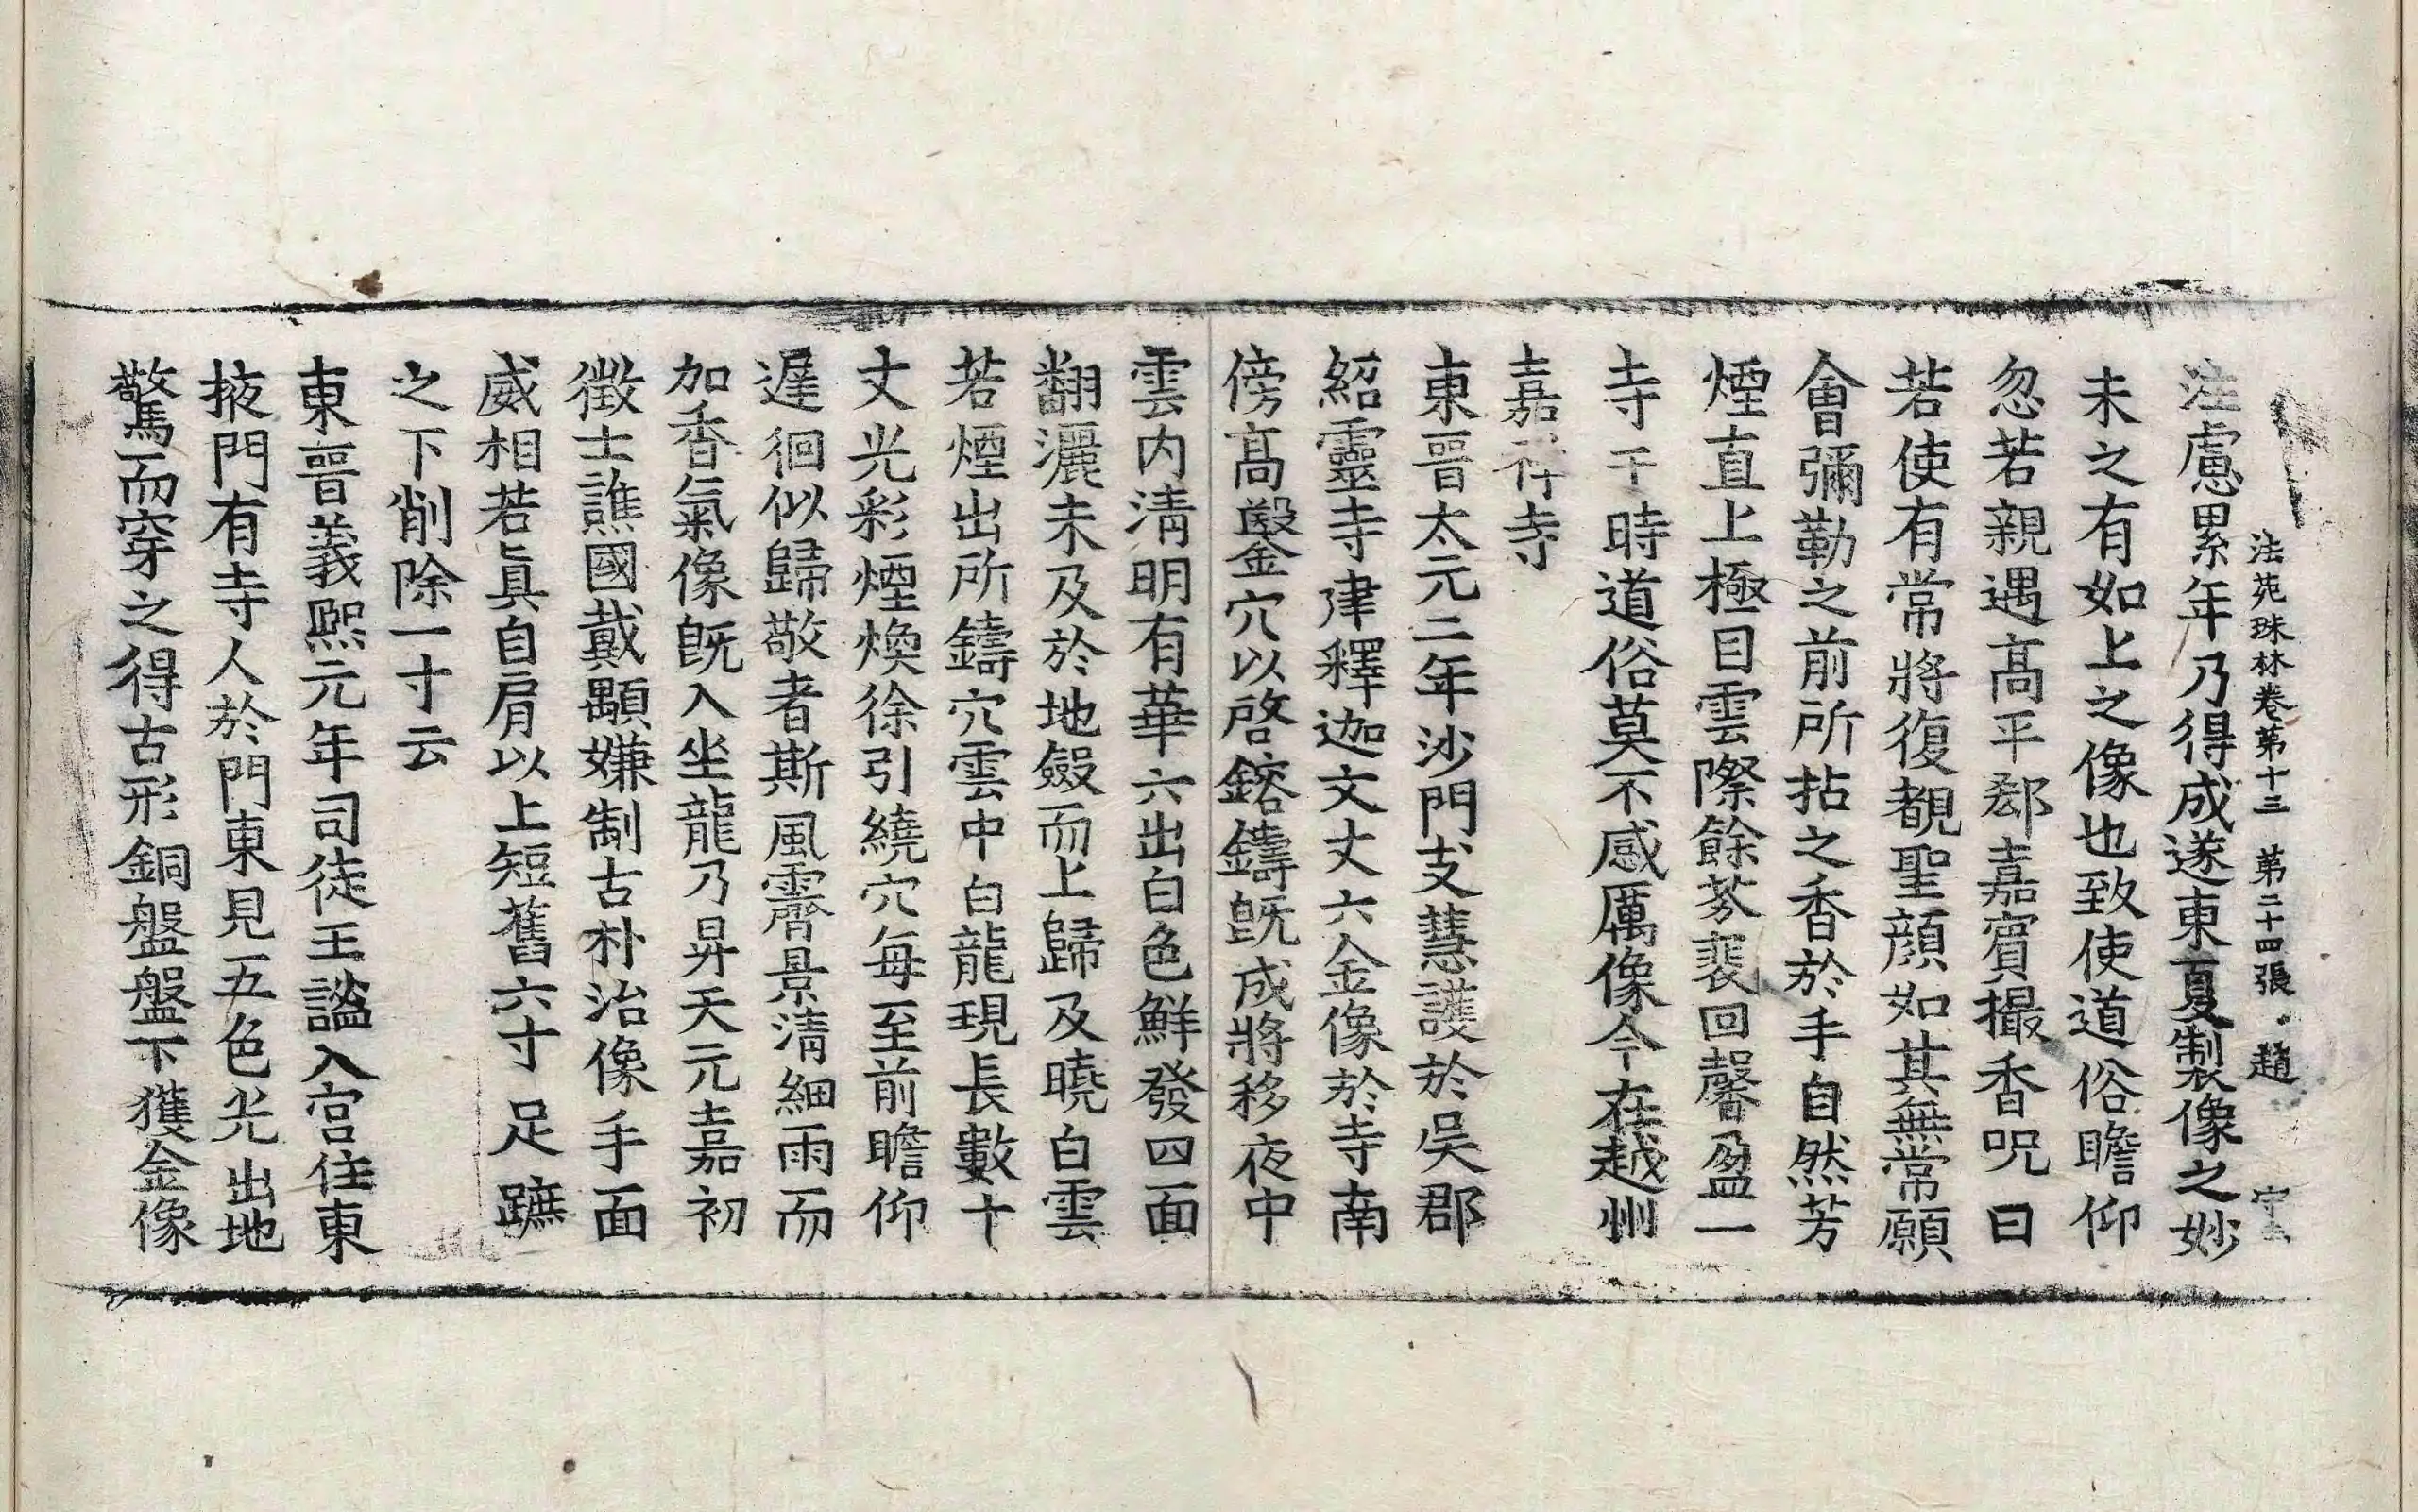 法苑珠林卷第十三 第二十四張 趙
注慮累年乃得成遂東夏製像之妙
未之有如上之像也致使道俗瞻仰
忽若親遇髙平郄嘉賔撮香呪曰
若使有常將復覩聖顔如其無常願
會彌勒之前所拈之香於手自然芳
煙直上極目雲際餘芬裴回馨盈一
寺于時道俗莫不感厲像今在越州
嘉祥寺
東晉太元二年沙門支慧護於吳郡
紹靈寺建釋迦文丈六金像於寺南
傍髙鑿穴以啓鎔鑄旣成將移夜中
雲内清明有華六出白色鮮發四面
翻灑未及於地斂而上歸及曉白雲
若煙出所鑄穴雲中白龍現長數十
丈光彩煙煥徐引繞穴每至前瞻仰
遲徊似歸敬者斯風霽景清細雨而
加香氣像旣入坐龍乃昇天元嘉初
徵士譙國戴顒嫌制古朴治像手面
威相若眞自肩以上短舊六寸足蹠
之下削除一寸云
東晉義熙元年司徒王謐入宫住東
掖門有寺人於門東見五色光出地
驚而穿之得古形銅盤盤下獲金像